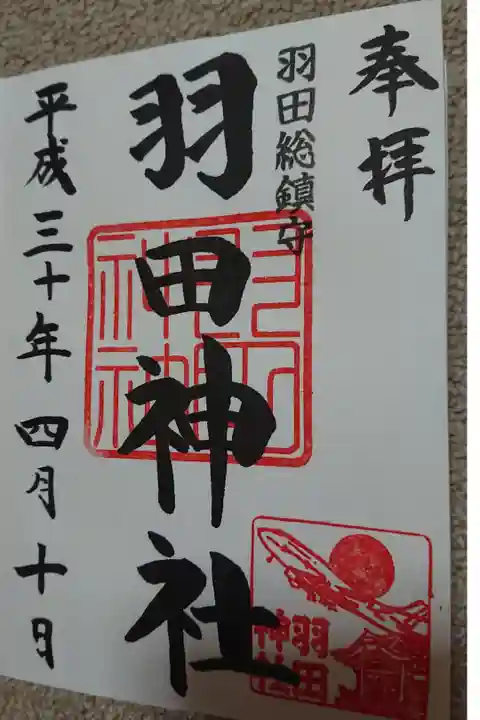 奉拝
羽田総鎮守
羽田神社
平成三十年四月十日
羽田
神社
羽田
神社